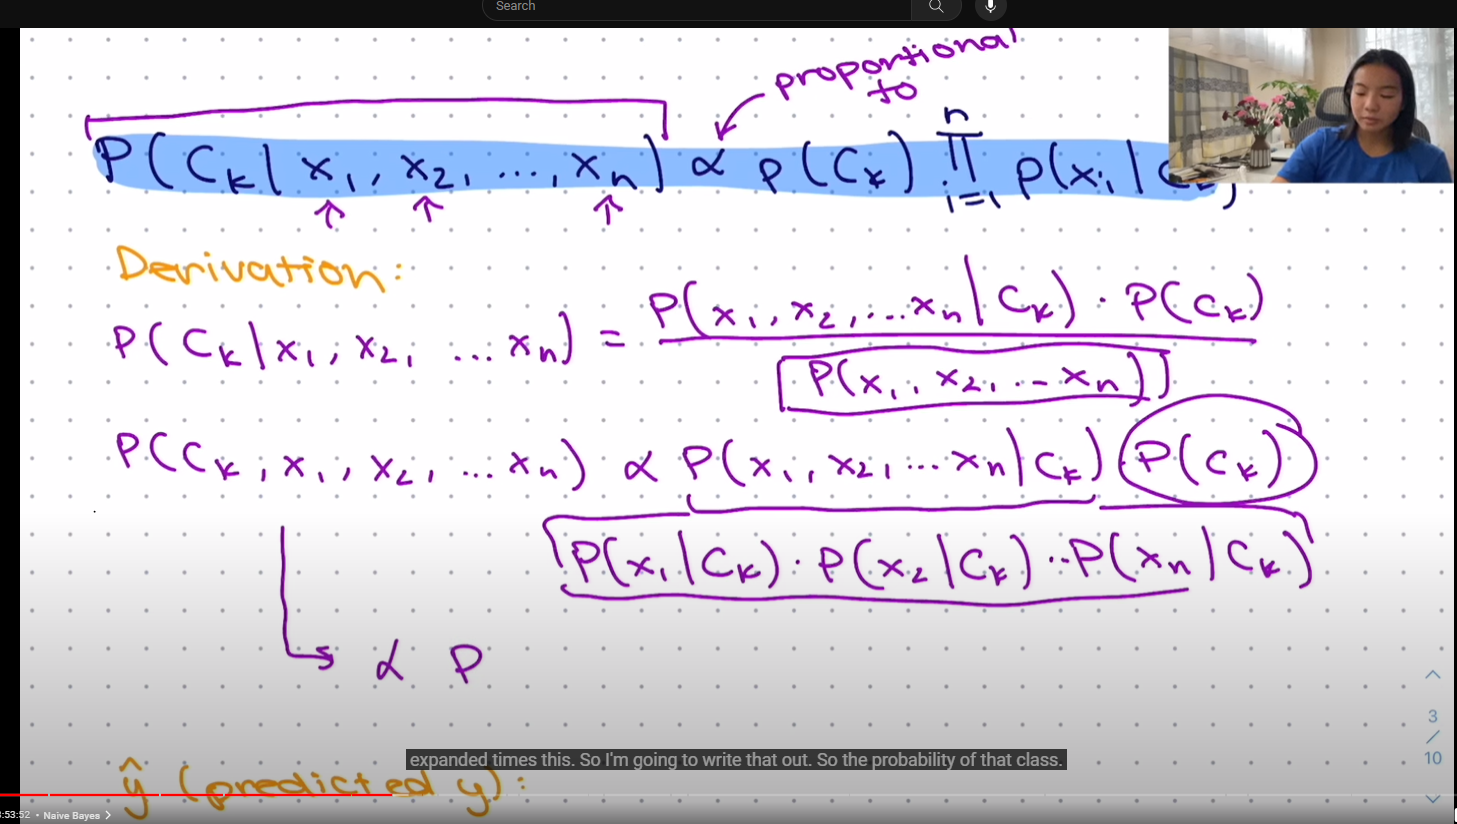 Search
proportional
to
P(Cₖ | x₁, x₂, ..., xₙ) ∝ p(Cₖ) ∏ᵢ₌₁ⁿ p(xᵢ |
Derivation:
P(Cₖ | x₁, x₂, ... xₙ) = P(x₁, x₂, ... xₙ | Cₖ) · P(Cₖ)
[P(x₁, x₂, ... xₙ)]
P(Cₖ, x₁, x₂, ... xₙ) ∝ P(x₁, x₂, ... xₙ | Cₖ) P(Cₖ)
P(x₁ | Cₖ) · P(x₂ | Cₖ) ·· P(xₙ | Cₖ)
∝ P
3
/
10
expanded times this. So I'm going to write that out. So the probability of that class.
ŷ (predicted y):
:53:52 • Naive Bayes >